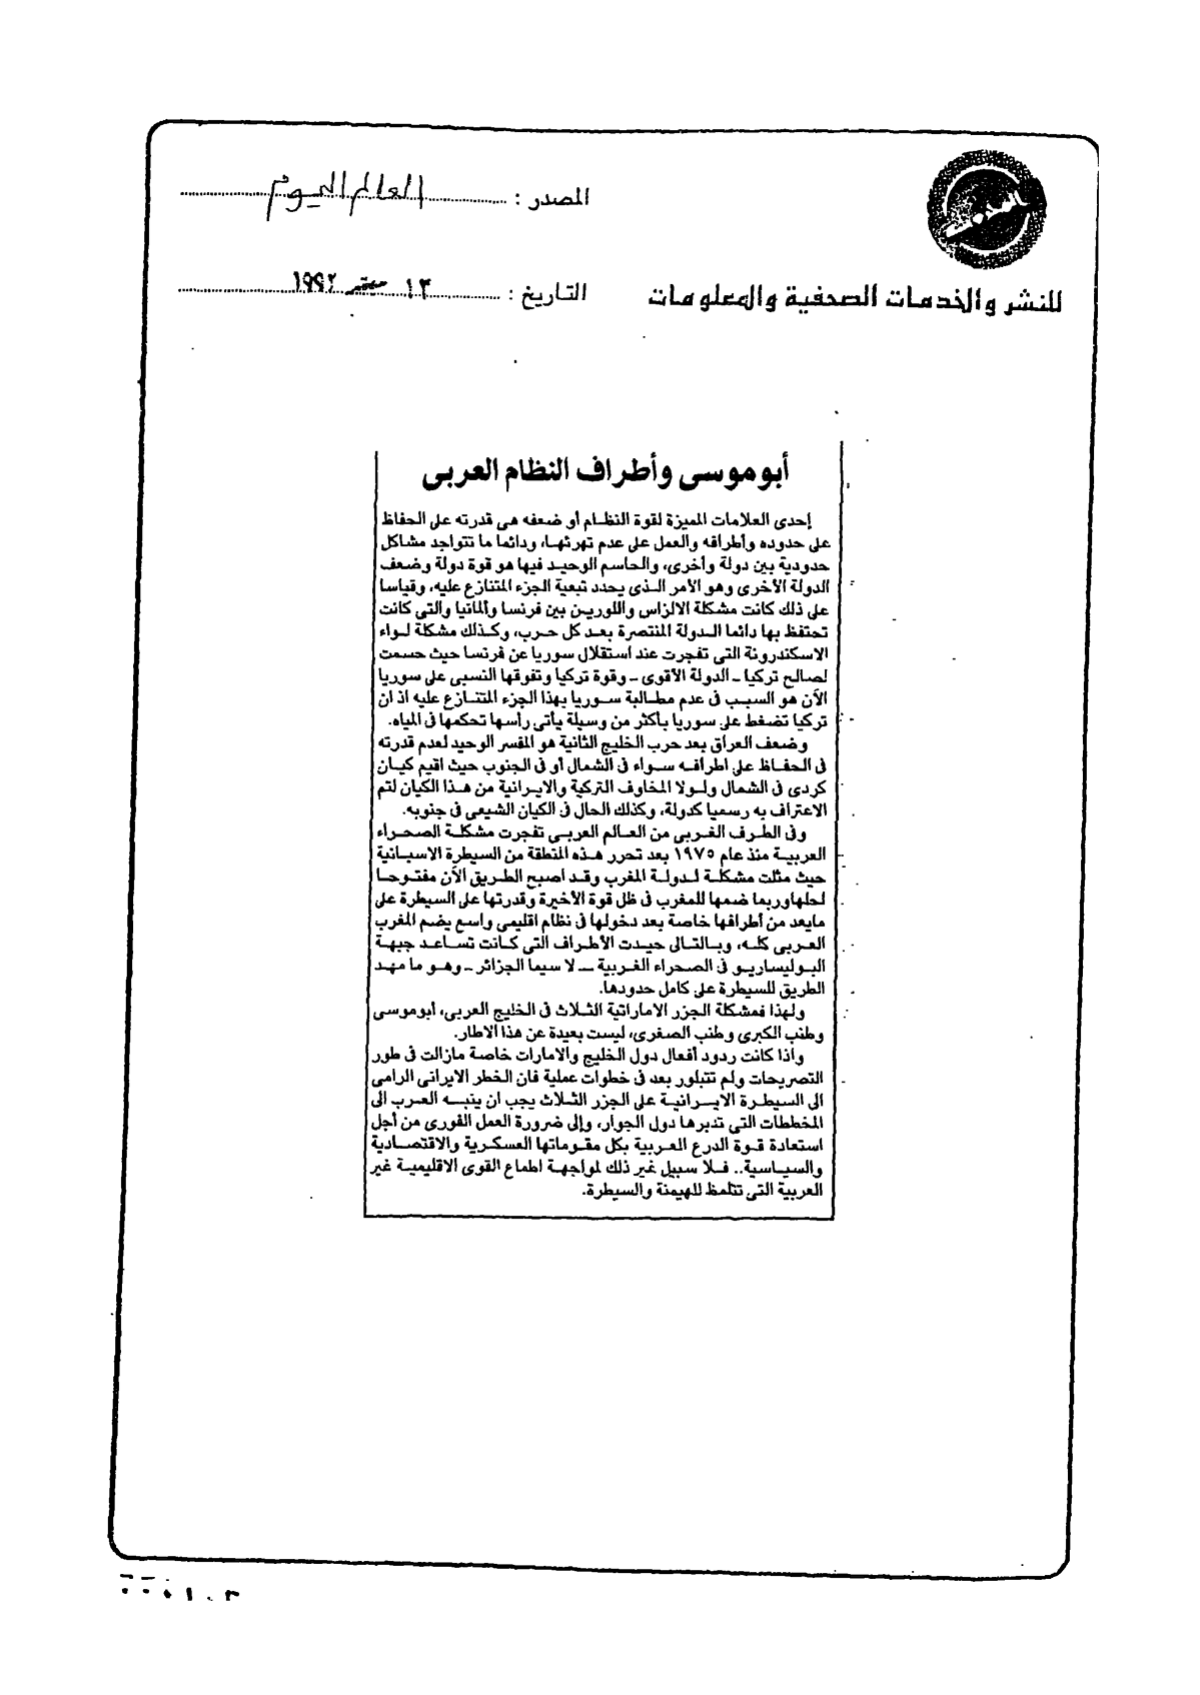 المصدر : العالم اليوم
التاريخ : ١٣ سبتمبر ١٩٩٢
للنشر والخدمات الصحفية والمعلومات
أبوموسى وأطراف النظام العربى
إحدى العلامات المميزة لقوة النظام أو ضعفه هى قدرته على الحفاظ
على حدوده وأطرافه والعمل على عدم تهرئها، ودائما ما تتواجد مشاكل
حدودية بين دولة وأخرى، والحاسم الوحيد فيها هو قوة دولة وضعف
الدولة الأخرى وهو الأمر الذى يحدد تبعية الجزء المتنازع عليه، وقياسا
على ذلك كانت مشكلة الالزاس واللورين بين فرنسا وألمانيا والتى كانت
تحتفظ بها دائما الدولة المنتصرة بعد كل حرب، وكذلك مشكلة لواء
الاسكندرونة التى تفجرت عند استقلال سوريا عن فرنسا حيث حسمت
لصالح تركيا - الدولة الأقوى - وقوة تركيا وتفوقها النسبى على سوريا
الآن هو السبب فى عدم مطالبة سوريا بهذا الجزء المتنازع عليه اذ ان
تركيا تضغط على سوريا بأكثر من وسيلة يأتى رأسها تحكمها فى المياه.
وضعف العراق بعد حرب الخليج الثانية هو المفسر الوحيد لعدم قدرته
فى الحفاظ على اطرافه سواء فى الشمال أو فى الجنوب حيث اقيم كيان
كردى فى الشمال ولولا المخاوف التركية والايرانية من هذا الكيان لتم
الاعتراف به رسميا كدولة، وكذلك الحال فى الكيان الشيعى فى جنوبه.
وفى الطرف الغربى من العالم العربى تفجرت مشكلة الصحراء
العربية منذ عام ١٩٧٥ بعد تحرر هذه المنطقة من السيطرة الاسبانية
حيث مثلت مشكلة لدولة المغرب وقد اصبح الطريق الآن مفتوحا
لحلهاوربما ضمها للمغرب فى ظل قوة الأخيرة وقدرتها على السيطرة على
مايعد من أطرافها خاصة بعد دخولها فى نظام اقليمى واسع يضم المغرب
العربى كله، وبالتالى حيدت الأطراف التى كانت تساعد جبهة
البوليساريو فى الصحراء الغربية - لا سيما الجزائر - وهو ما مهد
الطريق للسيطرة على كامل حدودها.
ولهذا فمشكلة الجزر الاماراتية الثلاث فى الخليج العربى، أبوموسى
وطنب الكبرى وطنب الصغرى، ليست بعيدة عن هذا الاطار.
واذا كانت ردود أفعال دول الخليج والامارات خاصة مازالت فى طور
التصريحات ولم تتبلور بعد فى خطوات عملية فان الخطر الايرانى الرامى
الى السيطرة الايرانية على الجزر الثلاث يجب ان ينبه العرب الى
المخططات التى تدبرها دول الجوار، وإلى ضرورة العمل الفورى من أجل
استعادة قوة الدرع العربية بكل مقوماتها العسكرية والاقتصادية
والسياسية.. فلا سبيل غير ذلك لمواجهة اطماع القوى الاقليمية غير
العربية التى تتلمظ للهيمنة والسيطرة.